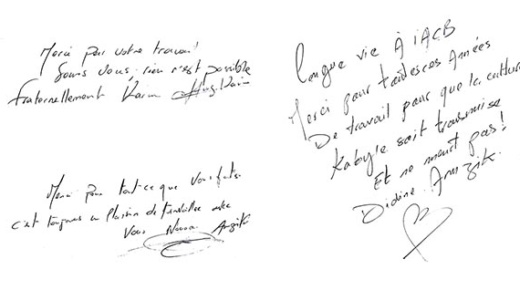 Merci pour votre travail
Sans vous rien n'est possible
fraternellement Karim
Merci pour tout ce que vous faites
c'est toujours un Plaisir de travailler avec
Vous Amzik
Longue vie À l'ACB
Merci pour toutes ces Années
De travail pour que la culture
Kabyle soit transmise
Et ne meurt pas!
Didine Amzik.